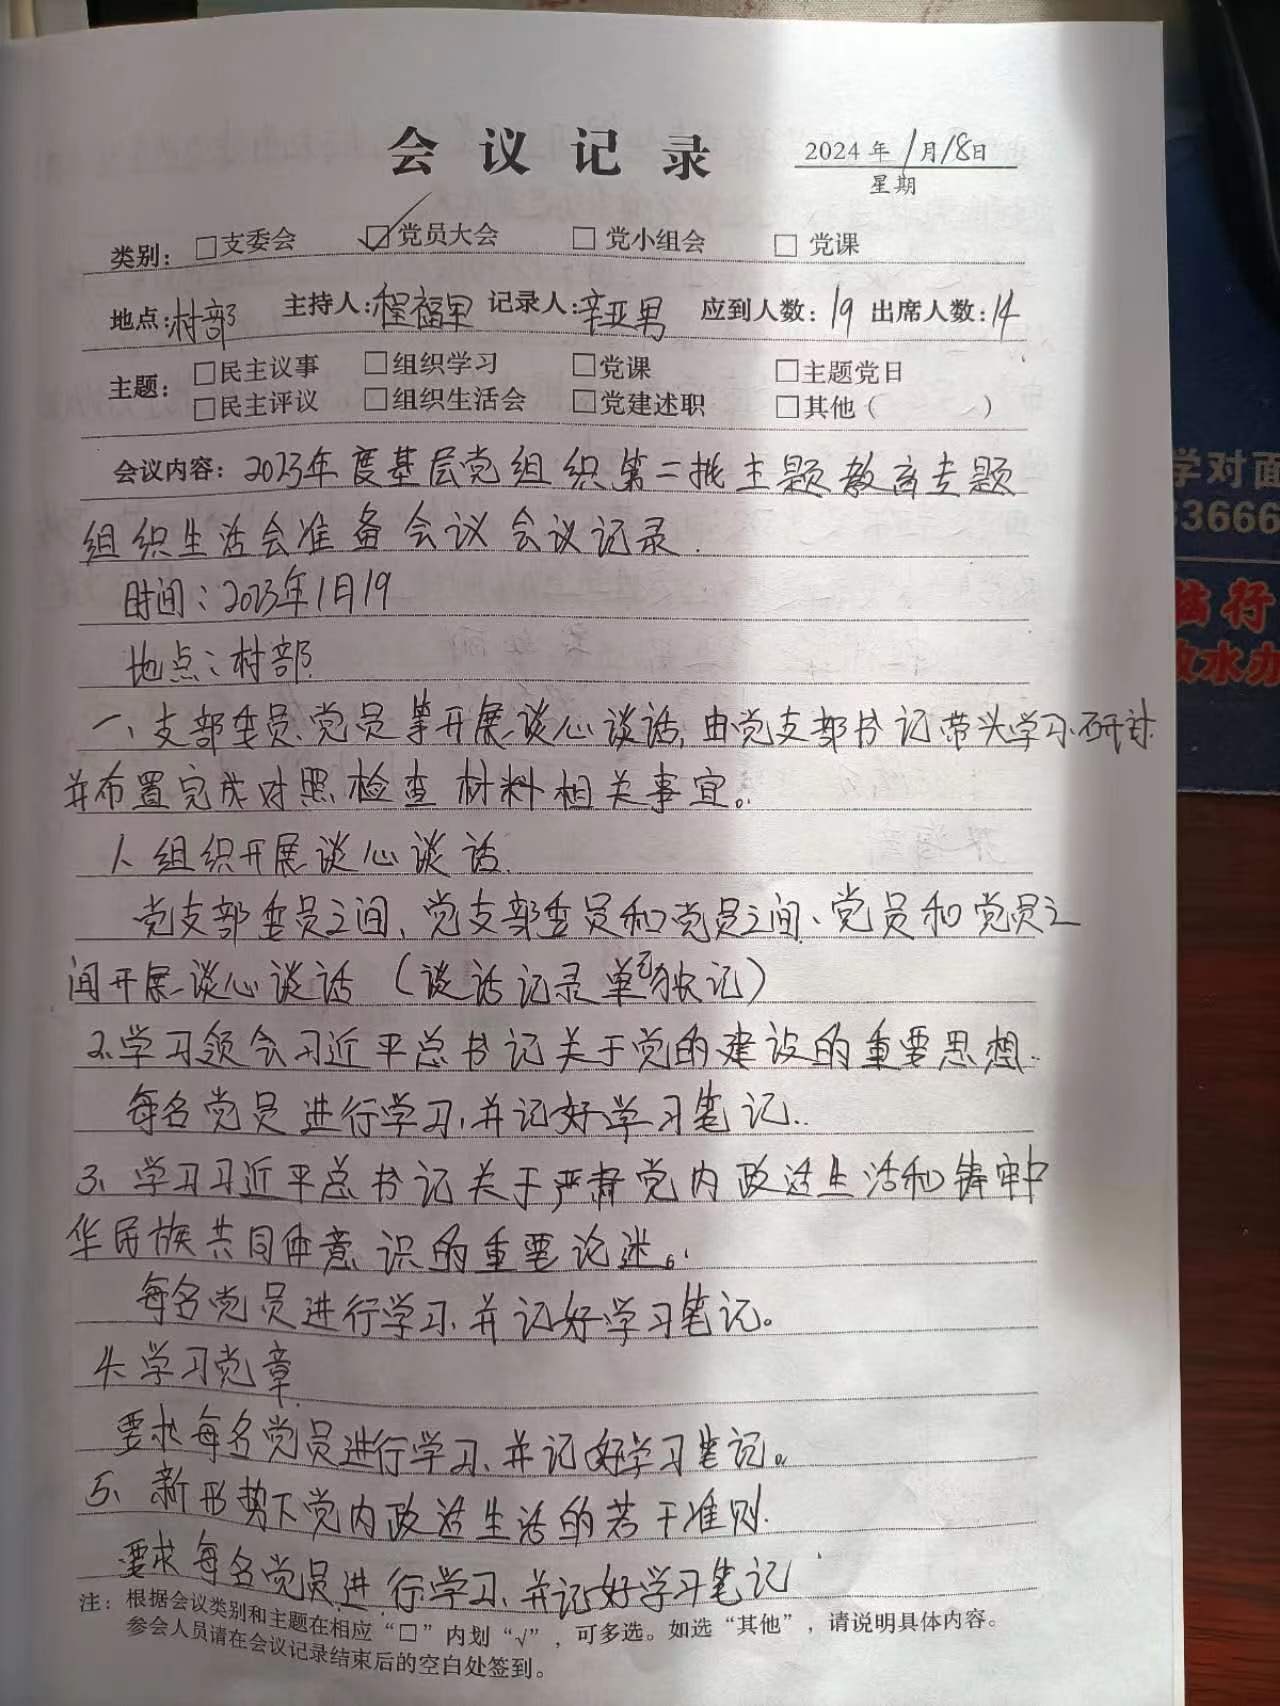 会议记录
2024年1月18日
星期
类别：□支委会 ☑党员大会 □党小组会 □党课
地点：村部 主持人：程福里 记录人：辛亚男 应到人数：19 出席人数：14
主题：□民主议事 □组织学习 □党课 □主题党日
□民主评议 □组织生活会 □党建述职 □其他（ ）
会议内容：2023年度基层党组织第二批主题教育专题
组织生活会准备会议会议记录.
时间：2023年1月19
地点：村部
一、支部委员、党员等开展谈心谈话，由党支部书记带头学习研讨
并布置完成对照检查材料相关事宜。
1、组织开展谈心谈话.
党支部委员之间、党支部委员和党员之间、党员和党员之
间开展谈心谈话（谈话记录单独记）
2.学习领会习近平总书记关于党的建设的重要思想.
每名党员进行学习,并记好学习笔记.
3、学习习近平总书记关于严肃党内政治生活和铸牢中
华民族共同体意识的重要论述。
每名党员进行学习、并记好学习笔记。
4、学习党章
要求每名党员进行学习、并记好学习笔记。
5、新形势下党内政治生活的若干准则.
要求每名党员进行学习、并记好学习笔记
注：根据会议类别和主题在相应“□”内划“√”，可多选。如选“其他”，请说明具体内容。
参会人员请在会议记录结束后的空白处签到。
学对面
36666
行
水办